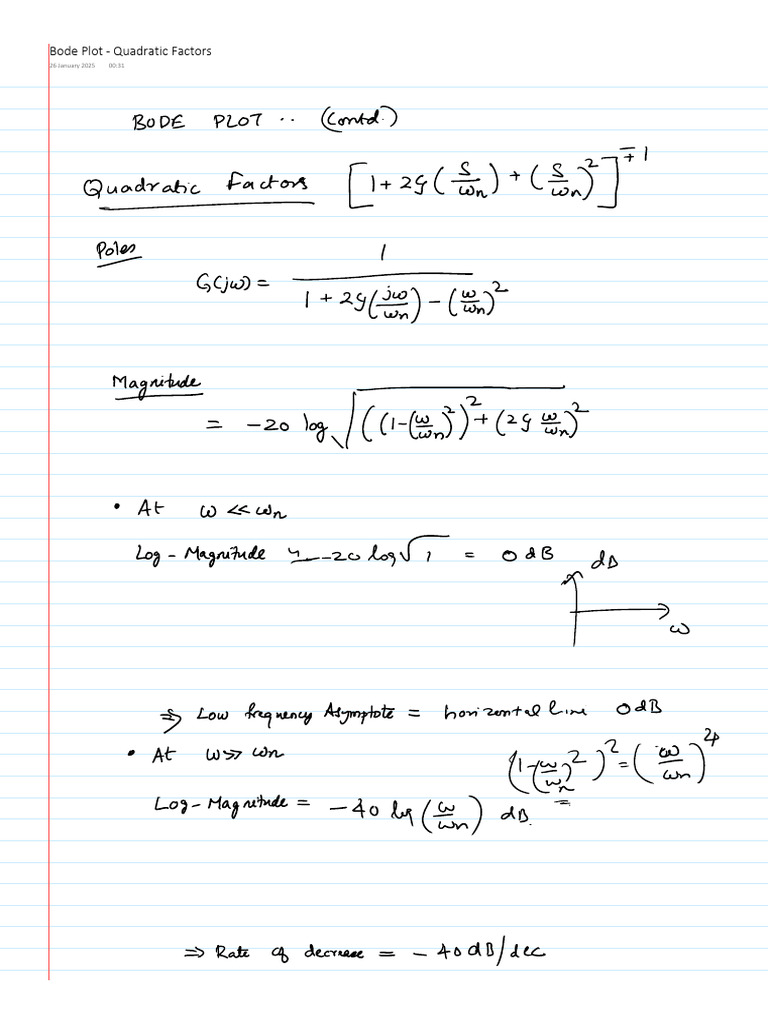 Bode Plot - Quadratic Factors
26 January 2025 00:31
BODE PLOT .. (Contd.)
Quadratic Factors [1 + 2ζ(s/ωn) + (s/ωn)²]^∓1
Poles
G(jω) = 1 / (1 + 2ζ(jω/ωn) - (ω/ωn)²)
Magnitude
= -20 log √((1-(ω/ωn)²)² + (2ζ ω/ωn)²
• At ω << ωn
Log - Magnitude -20 log √1 = 0 dB
dB
ω
⇒ Low frequency Asymptote = horizontal line 0 dB
• At ω >> ωn
(1-(ω/ωn)²)² = (ω/ωn)⁴
Log - Magnitude = -40 log (ω/ωn) dB.
⇒ Rate of decrease = - 40 dB/dec